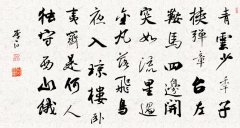 青雲少年子
挾彈章台左
鞍馬四邊開
突如流星過
金丸落飛鳥
夜入瓊樓卧
夷齊是何人
獨守西山餓